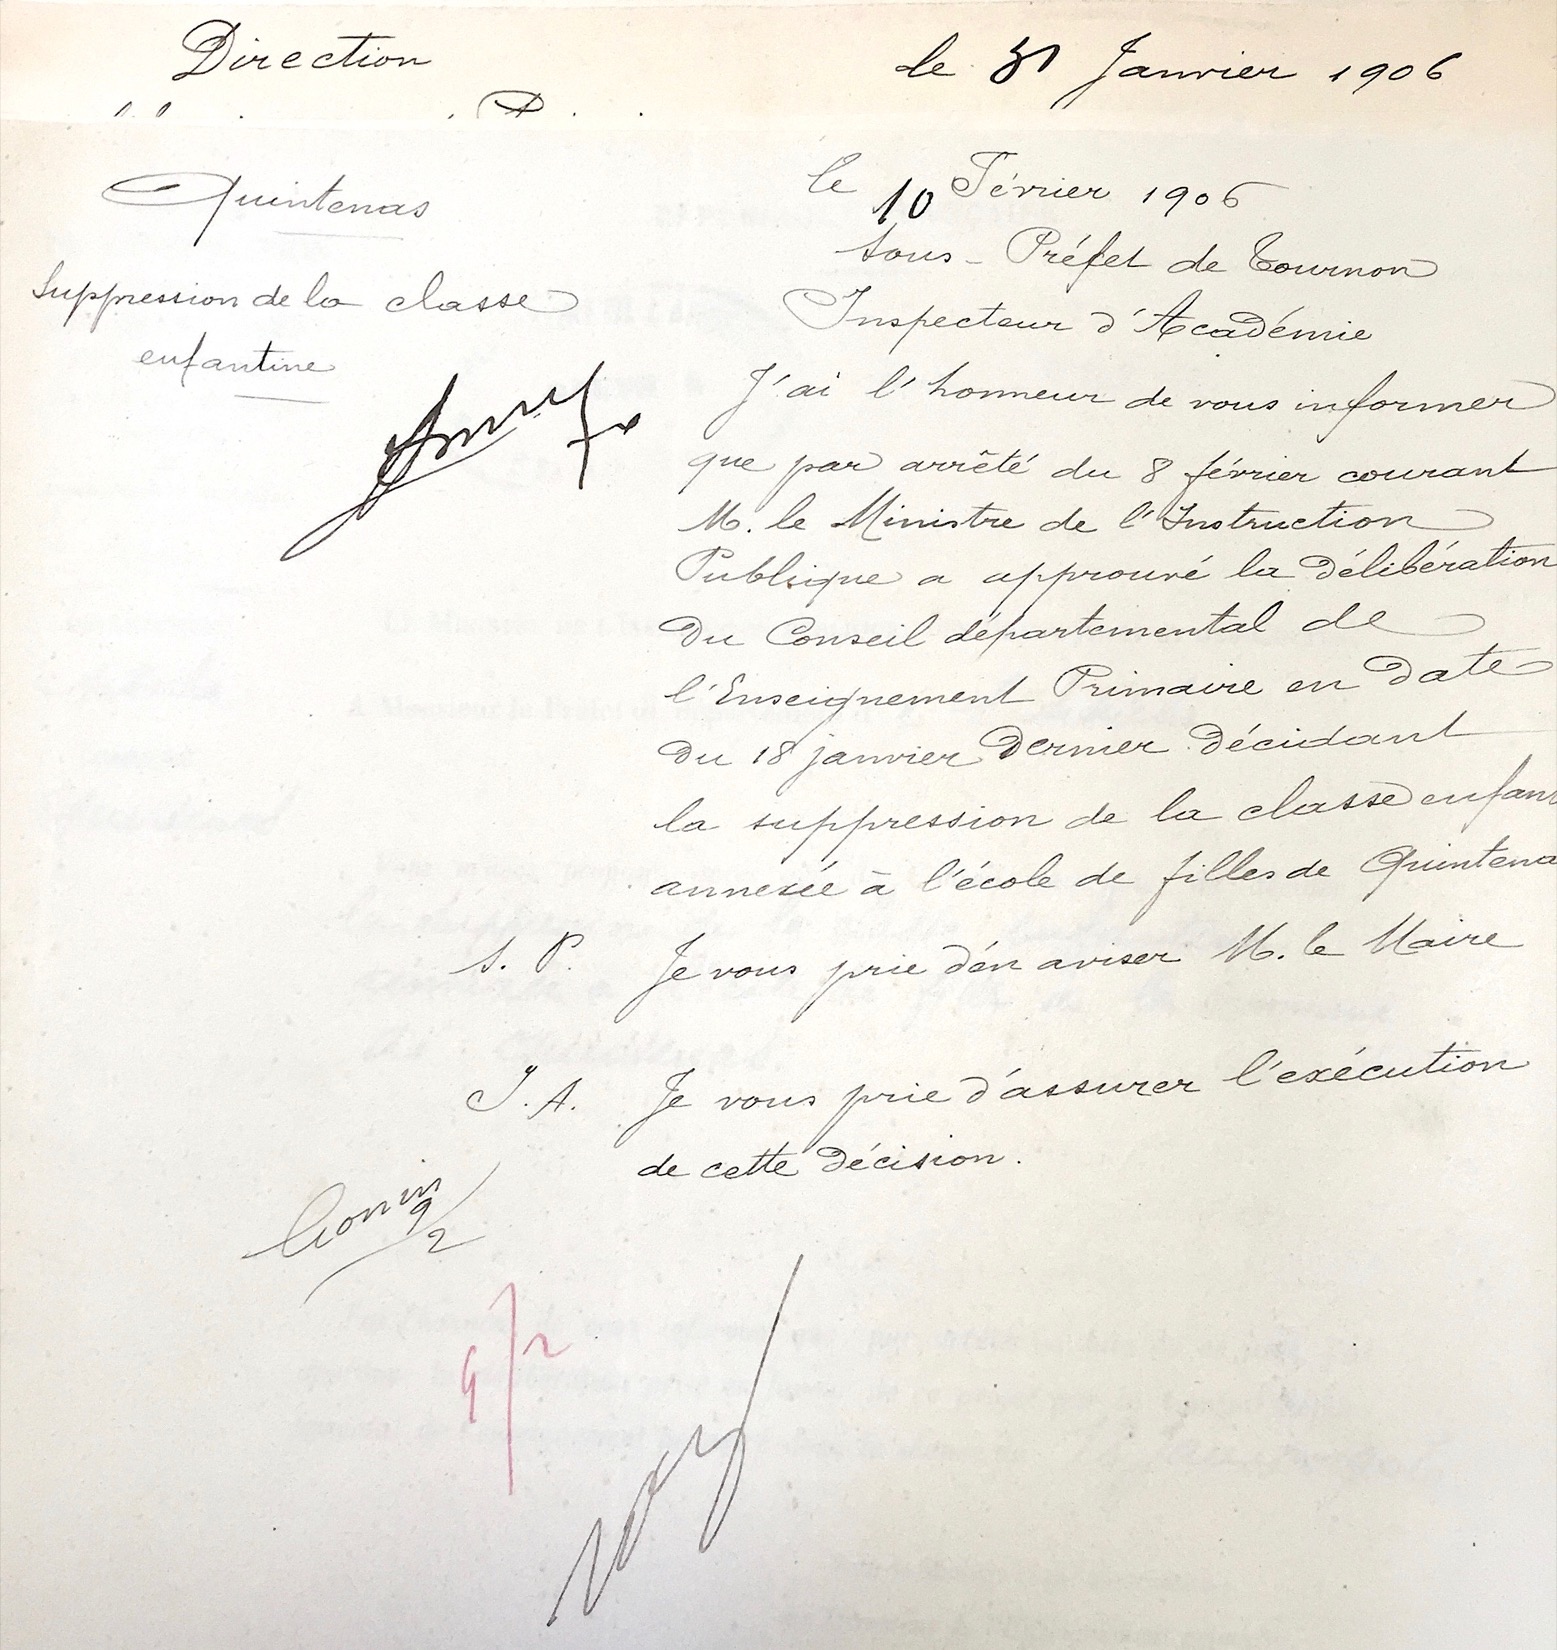 Direction
le 31 Janvier 1906
Quintenas
Suppression de la classe
enfantine
le 10 Février 1906
Sous-Préfet de Tournon
Inspecteur d'Académie
J'ai l'honneur de vous informer
que par arrêté du 8 février courant
M. le Ministre de l'Instruction
Publique a approuvé la délibération
du Conseil départemental de
l'Enseignement Primaire en date
du 18 janvier dernier décidant
la suppression de la classe enfant
annexée à l'école de filles de Quintena
S. P. Je vous prie d'en aviser M. le Maire
I. A. Je vous prie d'assurer l'exécution
de cette décision.
9/2
9/2